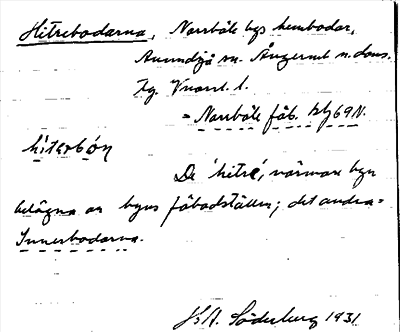 Hitrebodarna, Norrböle bys hembodar,
Anundsjö sn. Ångerml. n. doms.
Tg. Vuorst. l.
= Norrböle fäb. kbj 69 N.
hı́terbón
De 'hitre', närmare byn
belägna av byns fäbodställen; det andra =
Innerbodarna.
K. A. Söderberg 1931